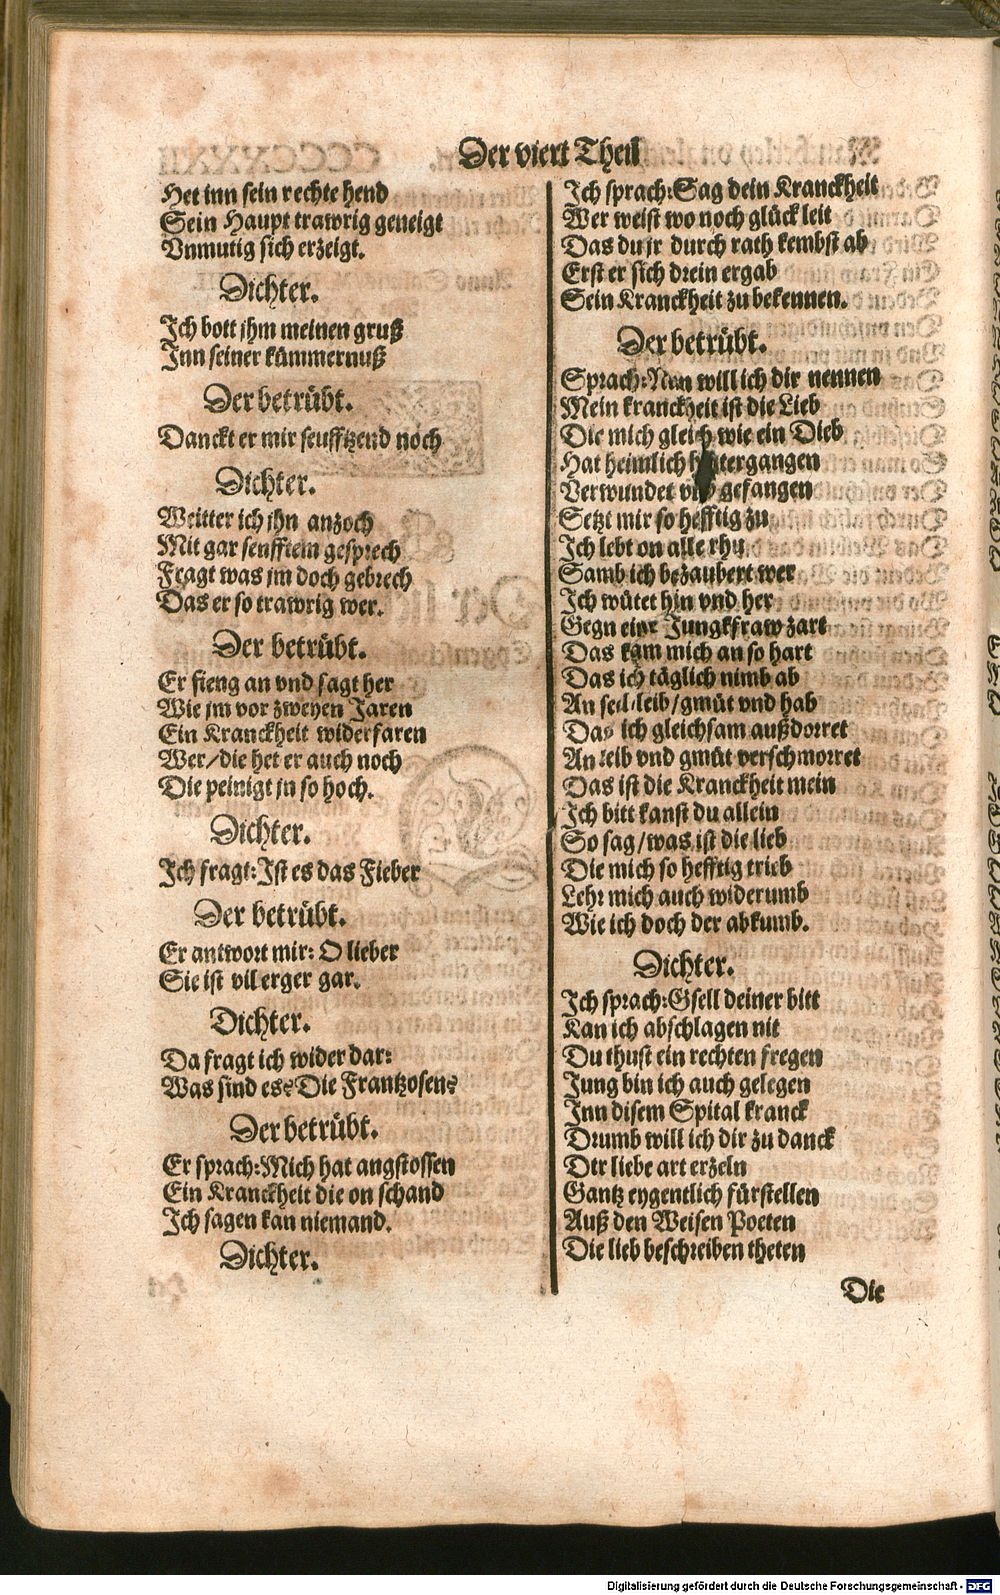 Der viert Theil
Het inn sein rechte hend
Sein Haupt trawrig geneigt
Vnmutig sich erzeigt.
Dichter.
Ich bott jhm meinen gruß
Inn seiner kümmernuß
Der betrübt.
Danckt er mir seufftzend noch
Dichter.
Weitter ich jhn anzoch
Mit gar senfftem gesprech
Fragt was jm doch gebrech
Das er so trawrig wer.
Der betrübt.
Er fieng an vnd sagt her
Wie jm vor zweyen Jaren
Ein Kranckheit widerfaren
Wer/die het er auch noch
Die peinigt jn so hoch.
Dichter.
Ich fragt: Ist es das Fieber
Der betrübt.
Er antwort mir: O lieber
Sie ist vil erger gar.
Dichter.
Da fragt ich wider dar:
Was sind es? Die Frantzosen?
Der betrübt.
Er sprach: Mich hat angstossen
Ein Kranckheit die on schand
Ich sagen kan niemand.
Dichter.
Ich sprach: Sag dein Kranckheit
Wer weist wo noch glück leit
Das du jr durch rath kembst ab
Erst er sich drein ergab
Sein Kranckheit zu bekennen.
Der betrübt.
Sprach: Nun will ich dir nennen
Mein kranckheit ist die Lieb
Die mich gleich wie ein Dieb
Hat heimlich hintergangen
Verwundet vnd gefangen
Setzt mir so hefftig zu
Ich lebt on alle rhu
Samb ich bezaubert wer
Ich wütet hin vnd her
Gegn einr Jungkfraw zart
Das kam mich an so hart
Das ich täglich nimb ab
An seel/leib/gmüt vnd hab
Das ich gleichsam außdorret
An leib vnd gmüt verschmorret
Das ist die Kranckheit mein
Ich bitt kanst du allein
So sag/was ist die lieb
Die mich so hefftig trieb
Lehr mich auch widerumb
Wie ich doch der abkumb.
Dichter.
Ich sprach: Gsell deiner bitt
Kan ich abschlagen nit
Du thust ein rechten fregen
Jung bin ich auch gelegen
Inn disem Spital kranck
Drumb will ich dir zu danck
Der liebe art erzeln
Gantz eygentlich fürstellen
Auß den Weisen Poeten
Die lieb beschreiben theten
Die
Digitalisierung gefördert durch die Deutsche Forschungsgemeinschaft - DFG